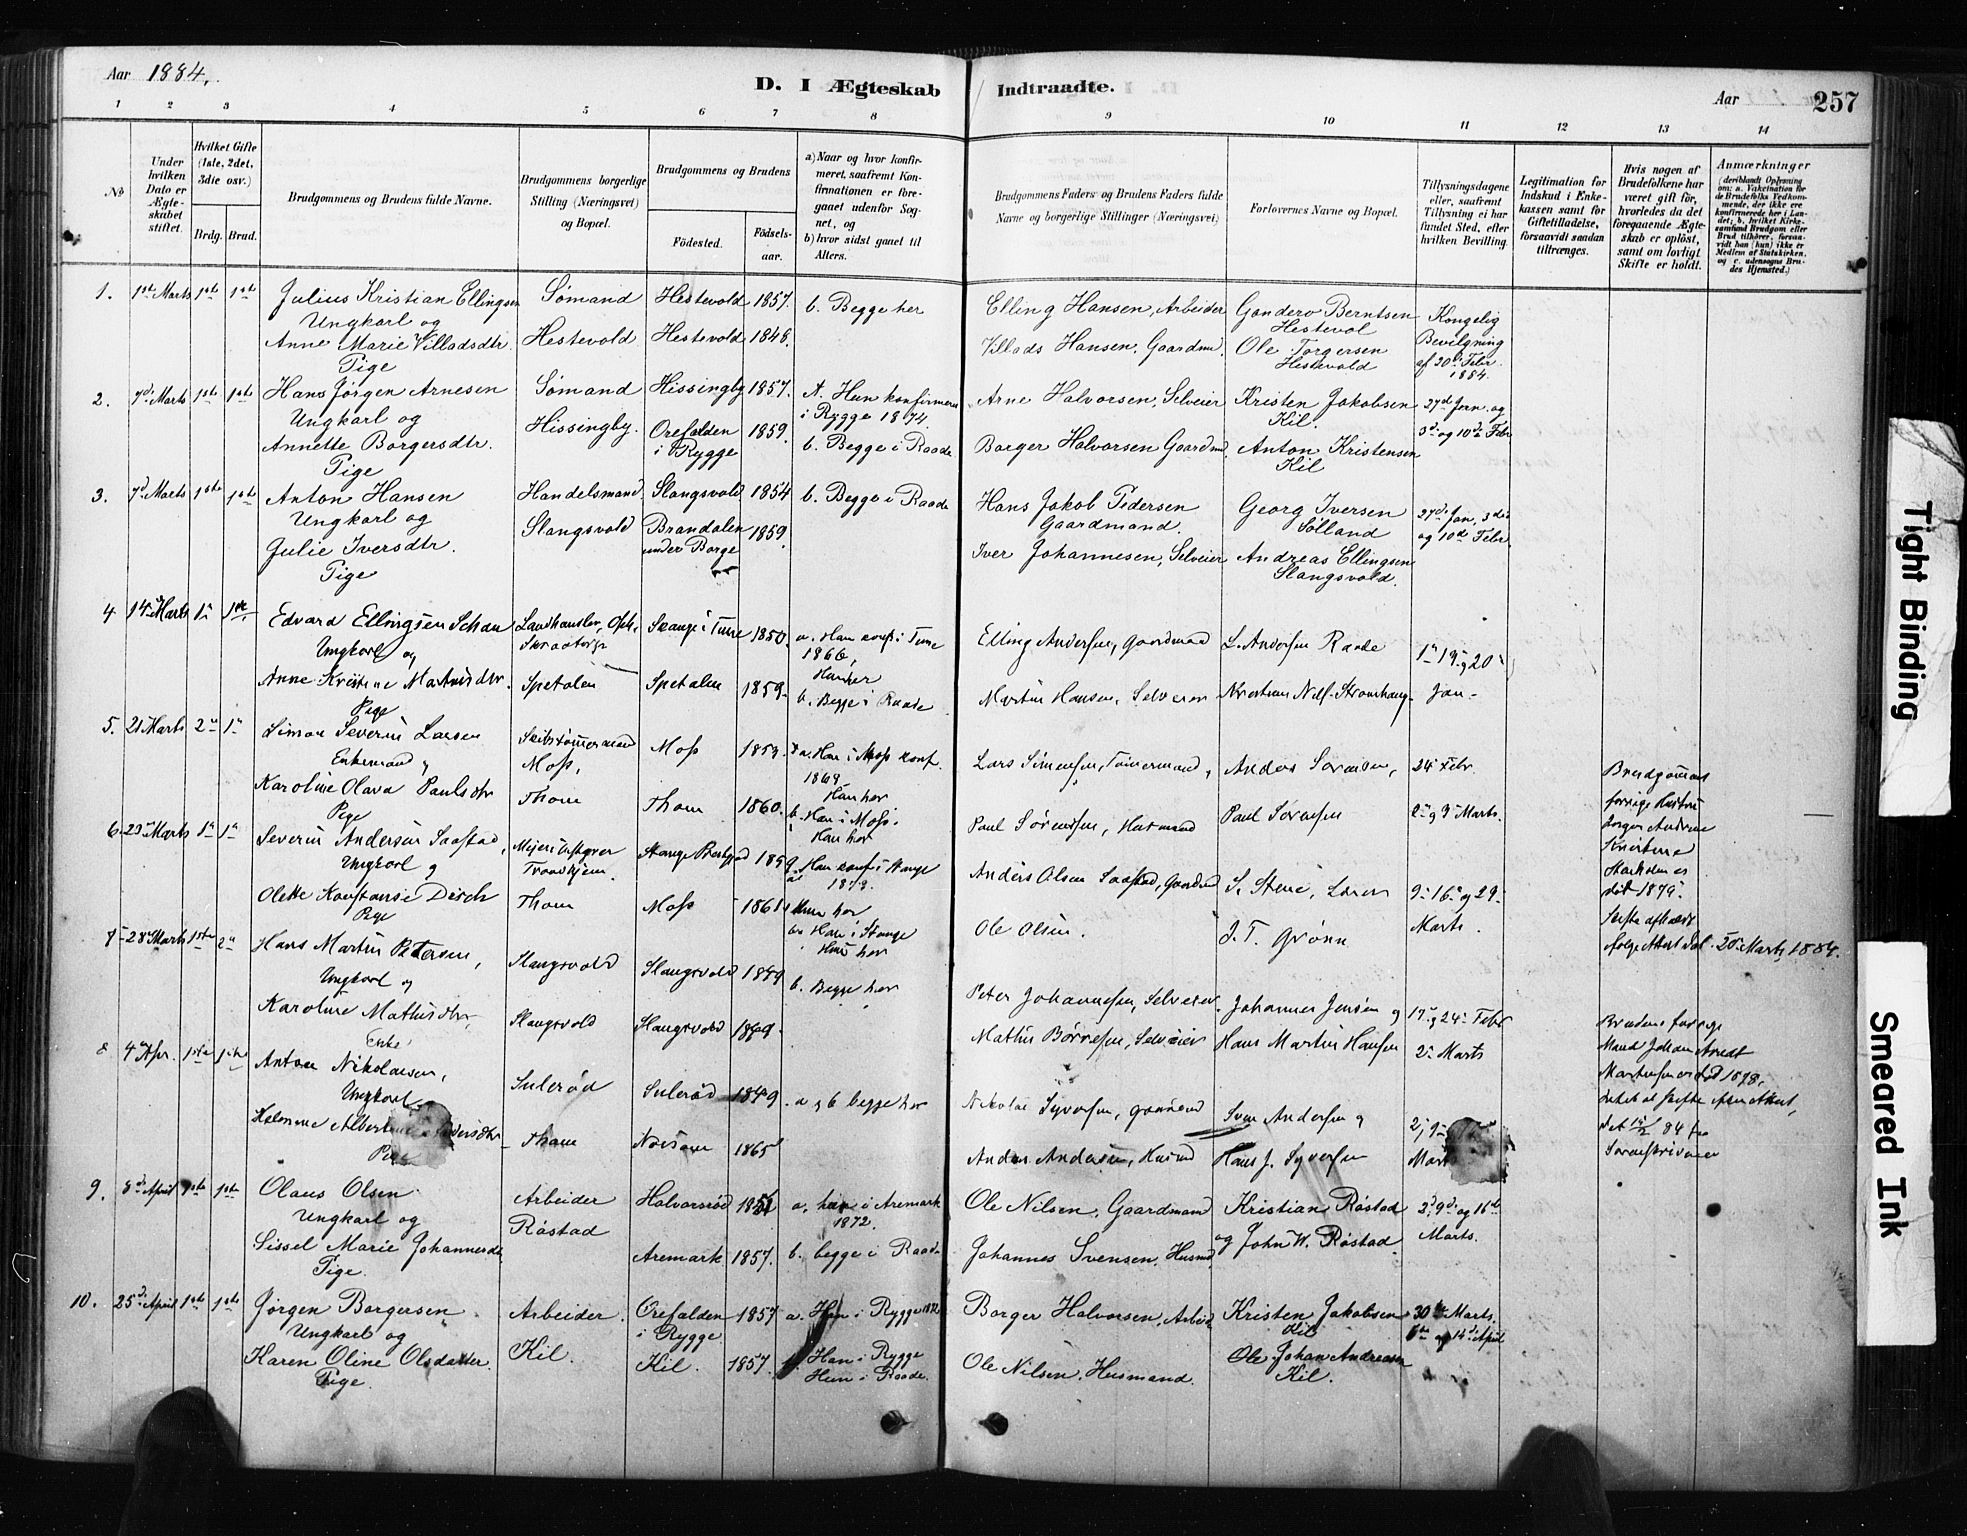 Aar 1884.
D. I Ægteskab Indtraadte.
Aar 257
1 2 3 4 5 6 7 8 9 10 11 12 13 14
No
Under hvilken Dato er Ægteskabet stiftet.
Hvilket Gifte (1ste, 2det, 3die osv.)
Brdg. Brud.
Brudgommens og Brudens fulde Navne.
Brudgommens borgerlige Stilling (Næringsvei) og Bopæl.
Brudgommens og Brudens
Födested. Födselsaar.
a) Naar og hvor konfirmeret, saafremt Konfirmationen er foregaaet udenfor Sognet, og
b) hvor sidst gaaet til Alters.
Brudgommens Faders og Brudens Faders fulde Navne og borgerlige Stillinger (Næringsvei)
Forlovernes Navne og Bopæl.
Tillysningsdagene eller, saafremt Tillysning ei har fundet Sted, efter hvilken Bevilling.
Legitimation for Indskud i Enkekassen samt for Giftetilladelse, forsaavidt saadan tiltrænges.
Hvis nogen af Brudefolkene har været gift för, hvorledes da det foregaaende Ægteskab er oplöst, samt om lovligt Skifte er holdt.
Anmærkninger
(deriblandt Oplysning om: a. Vakcination for de Brudefolks Vedkommende, der ikke ere konfirmerede her i Landet; b. hvilket Kirkesamfund Brudgom eller Brud tilhörer, forsaavidt han (hun) ikke er Medlem af Statskirken, og c. udensogns Brudes Hjemsted.)
1. 1ste Marts 1ste 1ste Julius Kristian Ellingsen Sømand Hestevold 1857. b. Begge her Elling Hansen, Arbeider Gundero Berntsen Kongelig
Ungkarl og Hestevol Bevilgning
Anne Marie Villadsdtr. Hestevold Hestevold 1848. Villads Hansen, Gaardmd. Ole Torgersen af 20de Febr.
Pige Hestevold 1884.
2. 7de Marts 1ste 1ste Hans Jørgen Arnesen Sømand Hissingby 1857. A. Hun konfirmeret Arne Halvorsen, Selveier Kristen Jakobsen 27de Jan. og
Ungkarl og i Rygge 1874. Kil. 3de og 10de Febr
Annette Borgersdtr. Hissingby. Orefalden 1859. b. Begge i Raade Borger Halvorsen Gaardmd. Anton Kristensen
Pige i Rygge Kil
3. 7d Marts 1ste 1ste Anton Hansen Handelsmand Slangsvold 1854 b. Begge i Raade Hans Jakob Pedersen Georg Iversen 27de Jan, 3die
Ungkarl og Gaardmand. Solland og 10de Febr.
Julie Iversdtr. Slangsvold Brandalen 1859. Iver Johannesen, Selveier Andreas Ellingsen
Pige under Borge Slangsvold.
4 14 Marts 1 1ste Edvard Ellingsen Skou Landhandler, Skange i Tune 1850. a. Han konf. i Tune Elling Andersen, Gaardmand L. Andersen Raade 13 og 20
Ungkarl og Skraatorp 1866,
Anne Kristine Martinsdtr. Spetalen Spetalen 1859. Hun her Martin Hansen, Selveier Jan.
Pige b. Begge i Raade
5. 21 Marts 2 1 Simon Severin Larsen Skibstømmermand Moss 1853. a. Han i Moss konf. Lars Simensen, Tømermand, Anders Sørensen, 24 Febr. Brudgommens
Enkemand og Moss, 1869 forrige Hustru
Karoline Olava Paulsdtr Thom Thom 1860. Hun her Paul Sørensen, Husmand Paul Sørensen 2 og 9 Marts.
Pige b. Han i Moss. Hun her
6. 23 Marts 1 1 Severin Andersen Saastad, Stange 185 a. Han konf. i Stange Anders Olsen Saastad, Gaardmd S. Stene, 9 16 og 29 død 1879.
Ungkarl og 18
Olette Konstanse Disch Thom Moss 1861 Hun her Ole Olsen. J. T. Grønn Marts.
Pige b. Han i Stange Hun her 20 Marts 1884.
7 28 Marts 1ste 2 Hans Martin Petersen, Slangsvold Slangsvold 1849 b. Begge her Peter Johannesen, Selveier Johannes Jensen og 17 og 24 Febr
Ungkarl og
Karoline Mathisdtr, Slangsvold Slangsvold 1849. Mathis Børresen, Selveier Hans Martin Hansen 2 Marts Brudens forrige
Enke Mand Johan
8 4 Apr. 1ste 1ste Anton Nikolaisen, Sulerød Sulerød 1849. a og b begge her Nikolai Syversen, Sven Andersen og 2, 9 død 1878,
Ungkarl og
Thom 1865 Anders Andersen, Husmd Hans J. Syversen Marts Sorenskriveren
Pige
9. 8de April 1ste 1ste Olaus Olsen Arbeider Halvorsrød 185 a. han i Aremark Ole Nilsen, Gaardmand Kristian Røstad 2d, 9d og 16de
Ungkarl og Røstad 1872. og John W. Røstad Marts.
Sissel Marie Johannesdtr Aremark 1857. b. begge i Raade Johannes Svensen, Husmd
Pige.
10. 25de April 1ste 1ste Jørgen Borgersen Arbeider. Orefalden 1857 a. Han i Rygge 1872 Borger Halvorsen, Arbeid. Kristen Jakobsen 30te Marts.
Ungkarl og i Rygge Kil 6te og 14de April
Karen Oline Olsdatter. Kil. Kil. 1857. Han i Rygge Ole Nilsen, Husmand. Ole Johan Andreasen
Pige. Hun i Raade. Kil.
Tight Binding
Smeared Ink